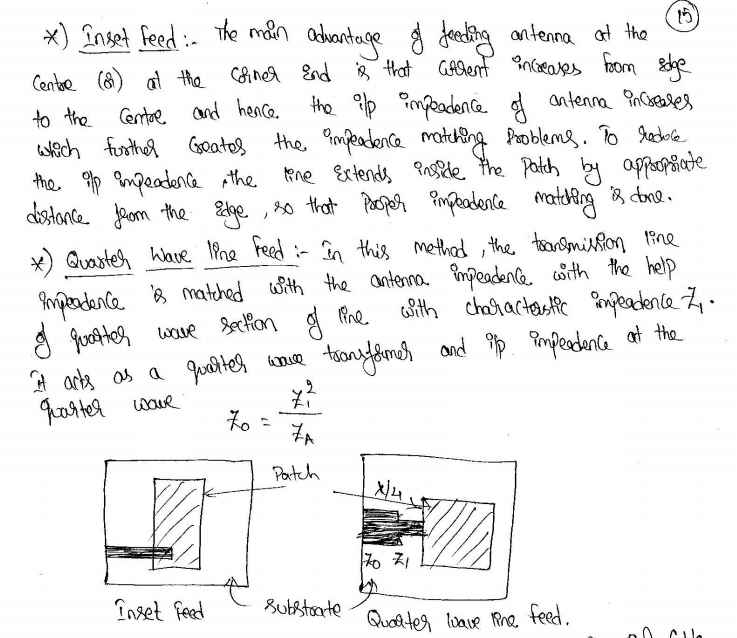 15
*) Inset feed :- The main advantage of feeding antenna at the
Centre (or) at the corner End is that current increases from edge
to the Centre and hence the i/p impeadence of antenna increases
which further Creates the impeadence matching problems. To reduce
the i/p impeadence, the line Extends inside the Patch by appropriate
distance from the Edge, so that Proper impeadence matching is done.
*) Quarter Wave line Feed :- In this method, the transmission line
impeadence is matched with the antenna impeadence with the help
of quarter wave section of line with characteristic impeadence Z1.
It acts as a quarter wave transformer and i/p impeadence at the
quarter wave
Z0 = Z1² / ZA
Patch
λ/4
Z0 Z1
Inset Feed
Substrate
Quarter wave line feed.